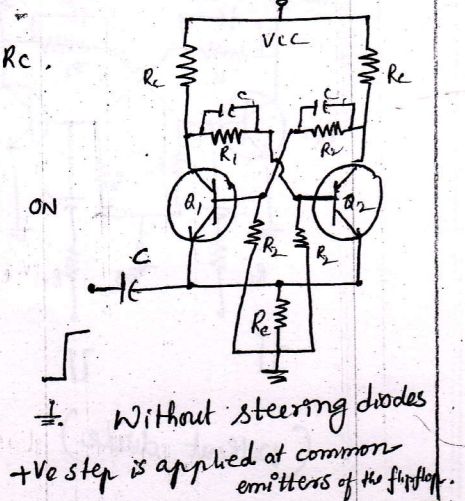 VCC
Rc.
Rc
Rc
C
C
R1
R2
Q1
Q2
ON
R2
R2
C
Re
Without steering diodes
+Ve step is applied at common
emitters of the flipflop.